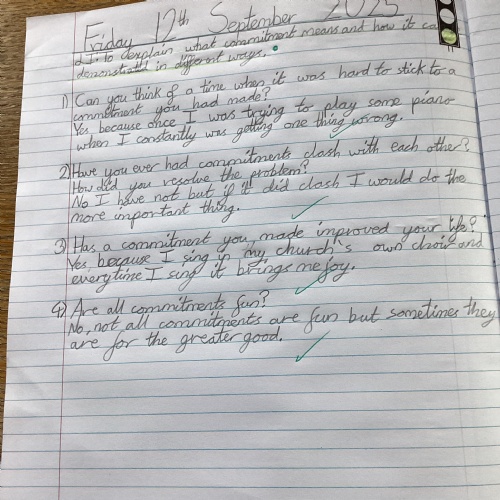 Friday 12th September 2025
L.I. to explain what commitment means and how it ca
demonstrated in different ways.
1) Can you think of a time when it was hard to stick to a
commitment you had made?
Yes because once I was trying to play some piano
when I constantly was getting one thing wrong.
2) Have you ever had commitments clash with each other?
How did you resolve the problem?
No I have not but if it did clash I would do the
more important thing.
3) Has a commitment you made improved your life?
Yes, because I sing in my church's own choir and
everytime I sing it brings me joy.
4) Are all commitments fun?
No, not all commitments are fun but sometimes they
are for the greater good.